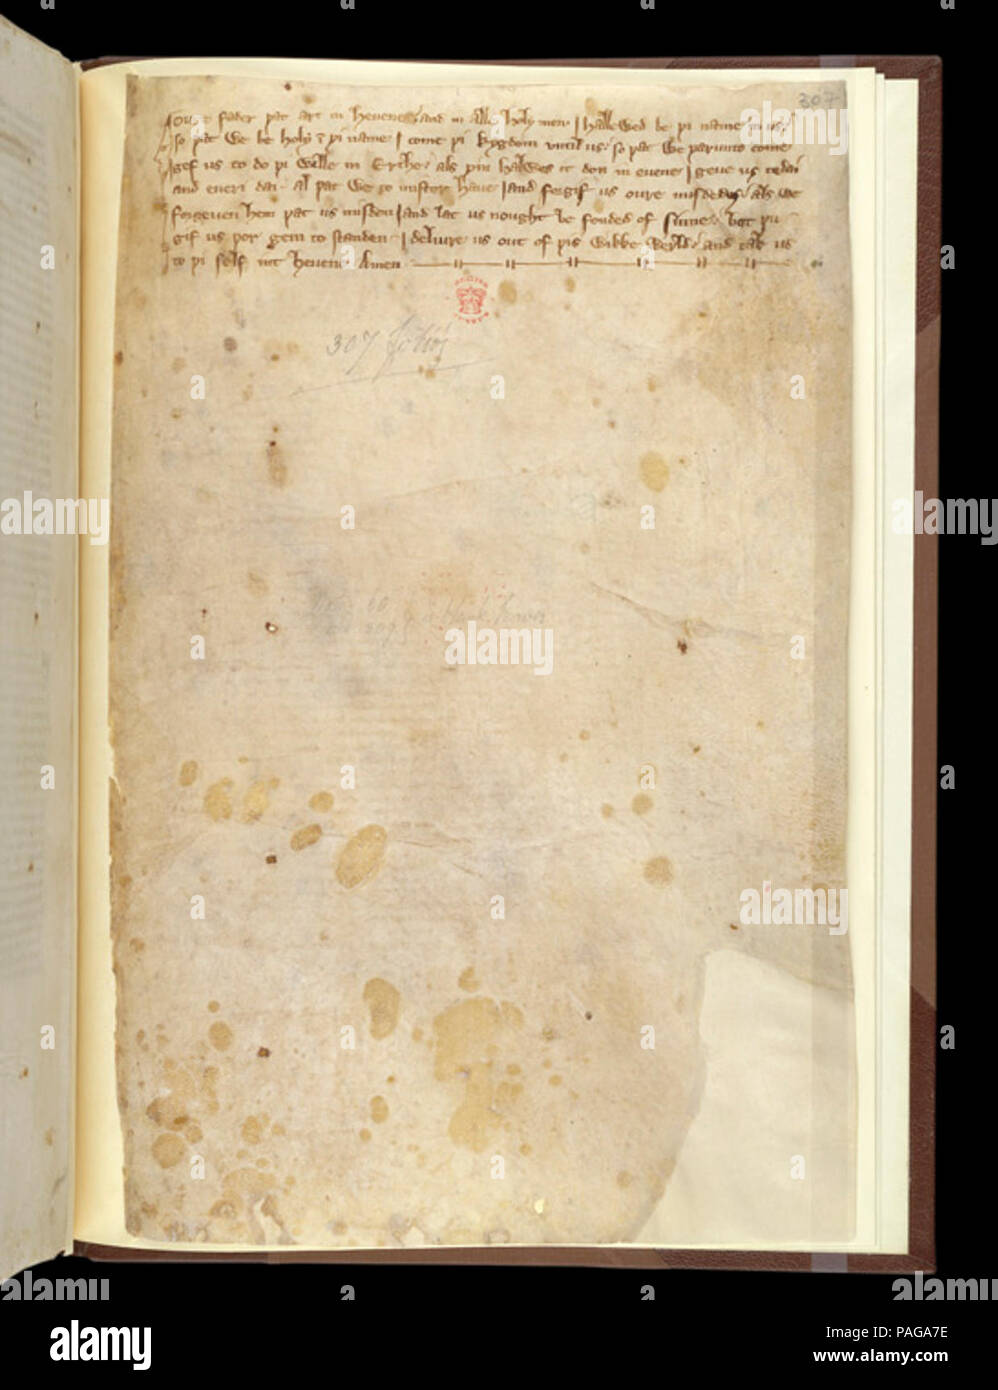 307
Oure fader þat art in heuene and in alle holy men / halewed be þi name in us
so þat we be holy in þi name / come þi kyngdom vntil us so þat we parunto come
gef us to do þi wille in Erthe als þin halwes it don in euene / geue us to dai
and eueri dai al þat we to mistere haue / and forgif us oure misdedis als we
forgeuen hem þat us misdon / and lat us nought be fonded of sinne bot þu
gif us por gein to standen / deliure us out of þis Wikke Werld and tak us
to þi self in heuene Amen
307 folios
alamy
PAGA7E
www.alamy.com